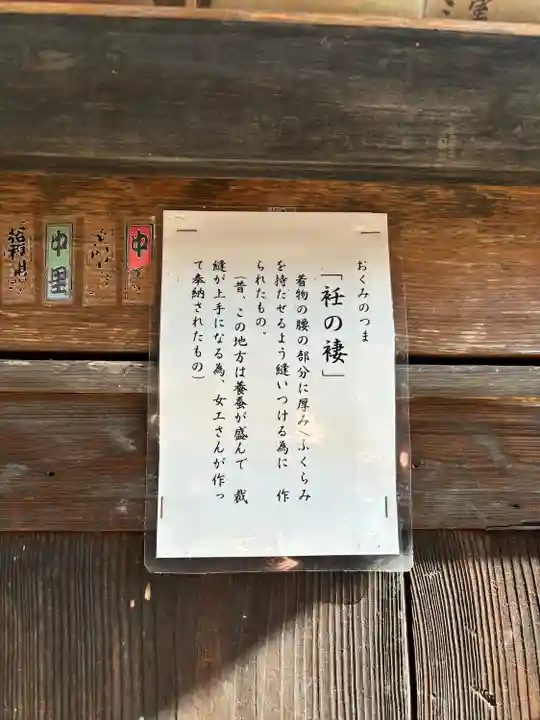 おくみのつま
「衽の褄」
着物の腰の部分に厚み〈ふくらみ
を持たせるよう縫いつける為に 作
られたもの。
(昔、この地方は養蚕が盛んで 裁
縫が上手になる為、女工さんが作っ
て奉納されたもの)
中
中里